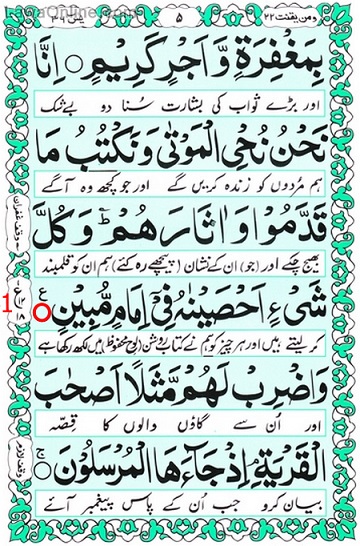 ومن یقنت ۲۲ ۵ یٰسٓ ۳۶
بِمَغْفِرَةٍ وَّاَجْرٍ كَرِیْمٍ ○ اِنَّا
اور بڑے ثواب کی بشارت سنا دو بےشک
نَحْنُ نُحْیِ الْمَوْتٰی وَنَكْتُبُ مَا
ہم مُردوں کو زندہ کریں گے اور جو کچھ وہ آگے
قَدَّمُوْا وَاٰثَارَهُمْ ؕ وَكُلَّ
بھیج چکے اور (جو) ان کے نشان (پیچھے رہ گئے) ہم ان کو قلمبند
وقف غفران
شَیْءٍ اَحْصَیْنٰهُ فِیْۤ اِمَامٍ مُّبِیْنٍ ○ ع
1
کر لیتے ہیں اور ہر چیز کو ہم نے کتاب روشن (لوح محفوظ) میں لکھ رکھا ہے
وَاضْرِبْ لَهُمْ مَّثَلًا اَصْحٰبَ
اور اُن سے گاؤں والوں کا قصّہ
الْقَرْیَةِ ۘ اِذْ جَآءَهَا الْمُرْسَلُوْنَ ○ ج
وقف لازم
بیان کرو جب اُن کے پاس پیغمبر آئے